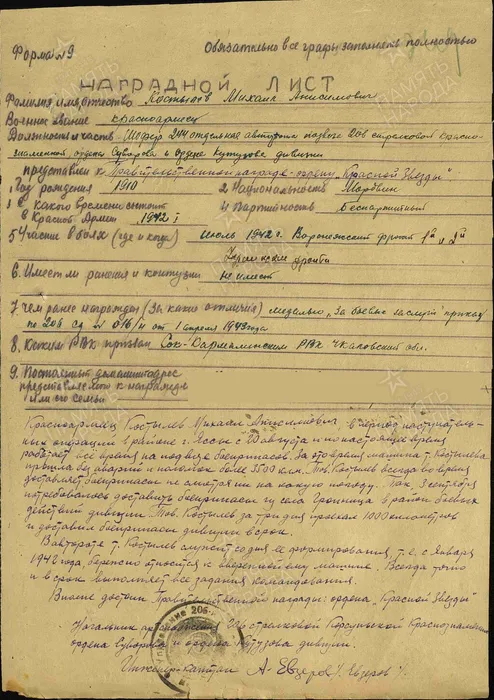 Форма №9
Обязательно все графы заполнять полностью
НАГРАДНОЙ ЛИСТ
Фамилия, имя, отчество Костылев Михаил Анисимович
Военное звание красноармеец
Должность и часть Шофер 244 отдельной автороты подвоза 206 стрелковой Красно-
знаменной ордена Суворова и ордена Кутузова дивизии
представлен к Правительственной награде - ордену "Красной Звезды"
1 Год рождения 1910
2. Национальность Мордвин
3 С какого времени состоит
в Красной Армии 1942 г
4 Партийность Беспартийный
5 Участие в боях (где и когда) Июль 1942 г. Воронежский фронт 1й и 2й
Украинские фронты
6. Имеет ли ранения и контузии не имеет
7 Чем ранее награжден (за какие отличия) медалью "За боевые заслуги" приказ
по 206 сд № 016/н от 1 апреля 1943 года
8. Каким РВК призван Сок-Кармалинским РВК Чкаловской обл.
9. Постоянный домашний адрес
представляемого к награде
и его семьи
Красноармеец Костылев Михаил Анисимович, в период наступатель-
ных операций в районе г. Яссы с 20 августа и по настоящее время
работает все время на подвозе боеприпасов. За это время машина т. Костылева
прошла без аварий и поломок более 3500 клм. Тов. Костылев всегда во время
доставляет боеприпасы не смотря ни на какую погоду. Так 3 сентября
потребовалось доставить боеприпасы из села в район боевых
действий дивизии. Тов. Костылев за три дня проехал 1000 километров
и доставил боеприпасы дивизии в срок.
В автороте т. Костылев служит со дня ее формирования, т.е. с января
1942 года, бережно относится к вверенной ему машине. Всегда точно
и в срок выполняет все задания командования.
Вполне достоин Правительственной награды: ордена "Красной Звезды"
Начальник 206 стрелковой Корсуньской Краснознаменной
ордена Суворова и ордена Кутузова дивизии.
Инженер-капитан А. Евзеров /Евзеров/.
Управление 206
ПАМЯТЬ НАРОДА